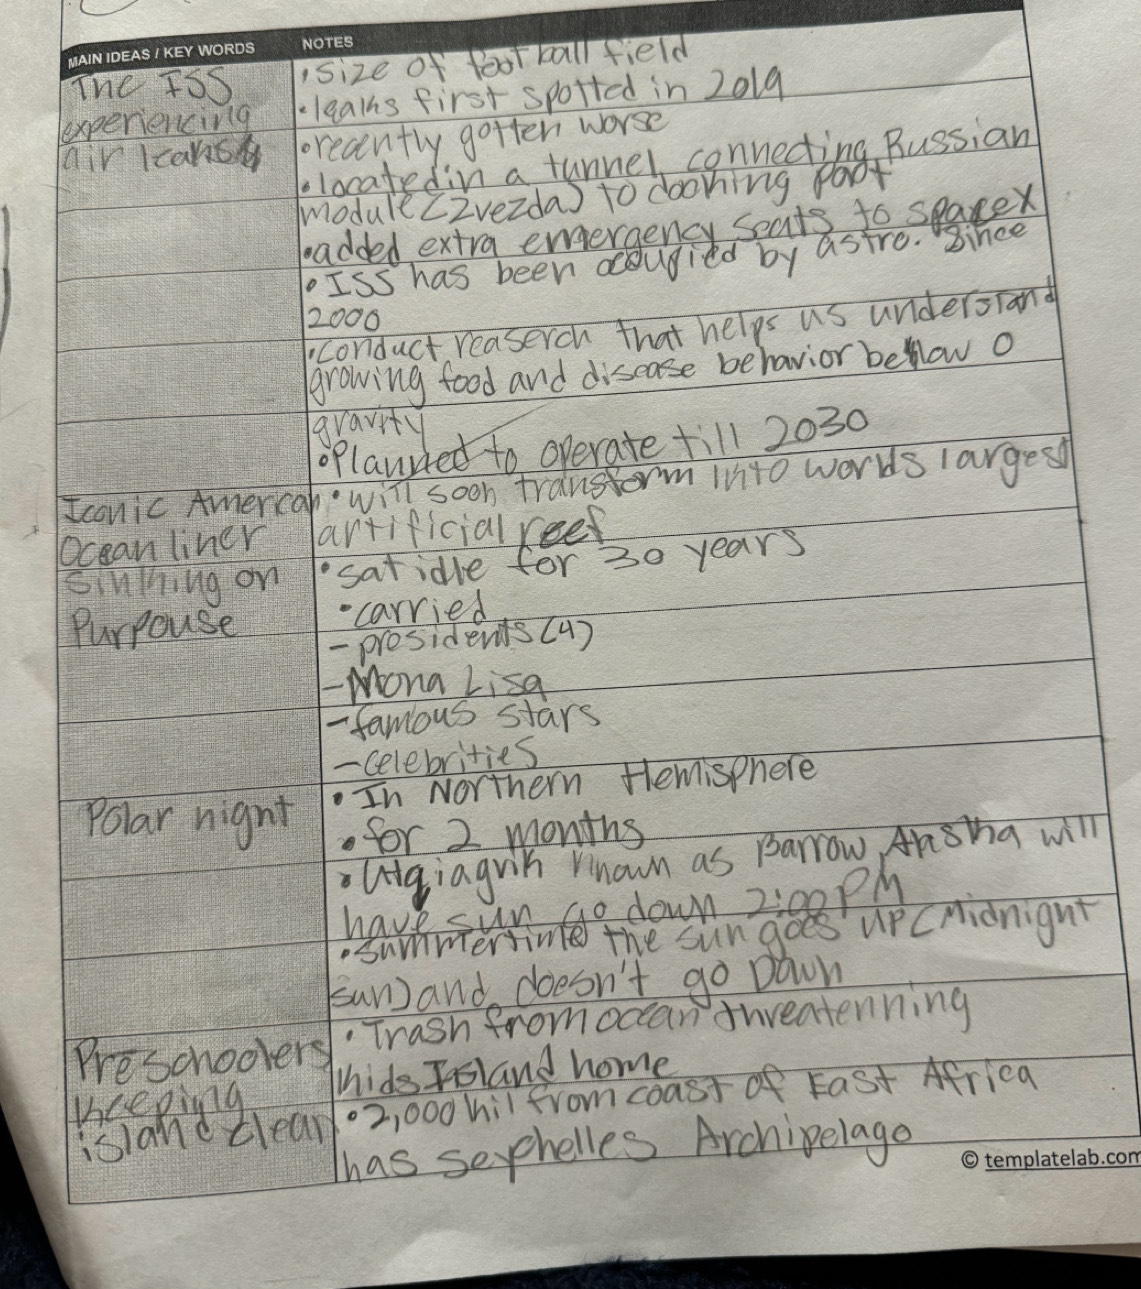 MAIN IDEAS / KEY WORDS
NOTES
The ISS
experiencing
air leaks
• size of football field
• leaks first spotted in 2019
• recently gotten worse
• located in a tunnel connecting Russian
module (Zvezda) to docking port
• added extra emergency seats to spacex
• ISS has been occupied by astro. since
2000
• conduct reaserch that helps us understand
growing food and disease behavior below 0
gravity
• Planned to operate till 2030
Iconic American
Ocean liner
sinking on
Purpouse
• will soon transform into words largest
artificial reef
• sat idle for 30 years
• carried
- presidents (4)
- Mona Lisa
- famous stars
- celebrities
Polar night
• In Northern Hemisphere
• for 2 months
• Utqiagvik known as Barrow, Alaska will
have sun go down 2:00 PM
• summertime the sun goes up (Midnight
sun) and doesn't go Down
Preschoolers
keeping
island clean
• Trash from ocean threatenning
kids Island home
• 2,000 kil from coast of East Africa
has seychelles Archipelago
© templatelab.com